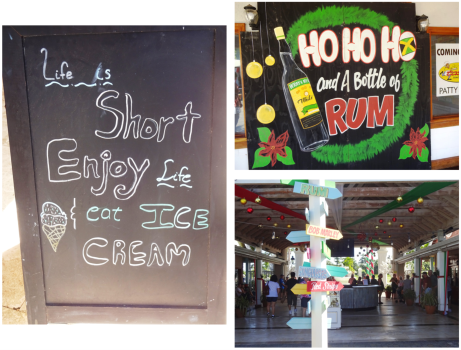 Life is
Short
Enjoy Life
eat ICE
CREAM
HO HO HO
and A Bottle of
RUM
COMING
PATTY
BOB MARLEY